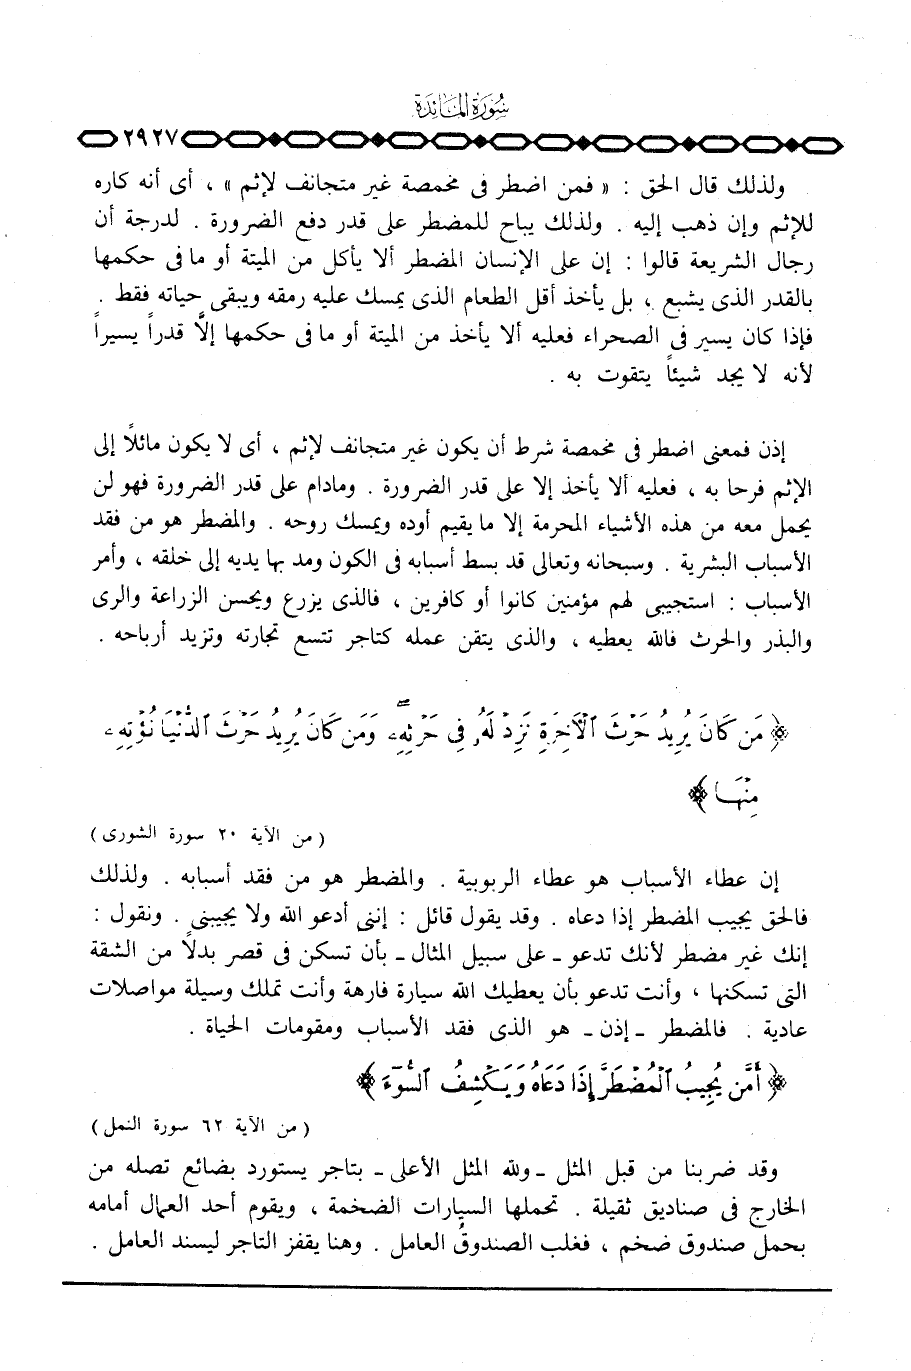 سُورَةُ المَائِدَةِ
٢٩٢٧
ولذلك قال الحق : « فمن اضطر فى مخمصة غير متجانف لإثم » ، أى أنه كاره
للإثم وإن ذهب إليه . ولذلك يباح للمضطر على قدر دفع الضرورة . لدرجة أن
رجال الشريعة قالوا : إن على الإنسان المضطر ألا يأكل من الميتة أو ما فى حكمها
بالقدر الذى يشبع ، بل يأخذ أقل الطعام الذى يمسك عليه رمقه ويبقى حياته فقط .
فإذا كان يسير فى الصحراء فعليه ألا يأخذ من الميتة أو ما فى حكمها إلَّا قدراً يسيراً
لأنه لا يجد شيئاً يتقوت به .
إذن فمعنى اضطر فى مخمصة شرط أن يكون غير متجانف لإثم ، أى لا يكون مائلاً إلى
الإثم فرحا به ، فعليه ألا يأخذ إلا على قدر الضرورة . ومادام على قدر الضرورة فهو لن
يحمل معه من هذه الأشياء المحرمة إلا ما يقيم أوده ويمسك روحه . والمضطر هو من فقد
الأسباب البشرية . وسبحانه وتعالى قد بسط أسبابه فى الكون ومد بها يديه إلى خلقه ، وأمر
الأسباب : استجيبى لهم مؤمنين كانوا أو كافرين ، فالذى يزرع ويحسن الزراعة والرى
والبذر والحرث فالله يعطيه ، والذى يتقن عمله كتاجر تتسع تجارته وتزيد أرباحه .
﴿ مَن كَانَ يُرِيدُ حَرْثَ ٱلْآخِرَةِ نَزِدْ لَهُۥ فِى حَرْثِهِۦ ۖ وَمَن كَانَ يُرِيدُ حَرْثَ ٱلدُّنْيَا نُؤْتِهِۦ
مِنْهَا ﴾
( من الآية ٢٠ سورة الشورى )
إن عطاء الأسباب هو عطاء الربوبية . والمضطر هو من فقد أسبابه . ولذلك
فالحق يجيب المضطر إذا دعاه . وقد يقول قائل : إننى أدعو الله ولا يجيبنى . ونقول :
إنك غير مضطر لأنك تدعو ـ على سبيل المثال ـ بأن تسكن فى قصر بدلاً من الشقة
التى تسكنها ، وأنت تدعو بأن يعطيك الله سيارة فارهة وأنت تملك وسيلة مواصلات
عادية . فالمضطر ـ إذن ـ هو الذى فقد الأسباب ومقومات الحياة .
﴿ أَمَّن يُجِيبُ ٱلْمُضْطَرَّ إِذَا دَعَاهُ وَيَكْشِفُ ٱلسُّوٓءَ ﴾
( من الآية ٦٢ سورة النمل )
وقد ضربنا من قبل المثل ـ ولله المثل الأعلى ـ بتاجر يستورد بضائع تصله من
الخارج فى صناديق ثقيلة . تحملها السيارات الضخمة ، ويقوم أحد العمال أمامه
بحمل صندوق ضخم ، فغلب الصندوقُ العامل . وهنا يقفز التاجر ليسند العامل .